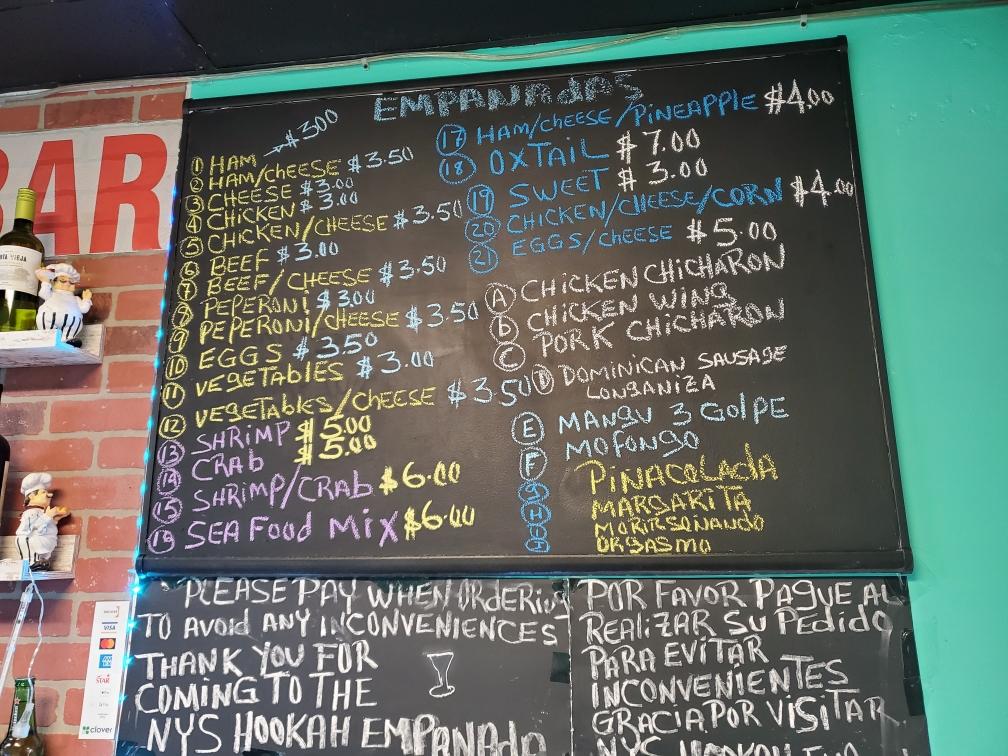 BAR
EMPANADAS
① HAM → $3.00
② HAM/CHEESE $3.50
③ CHEESE $3.00
④ CHICKEN $3.00
⑤ CHICKEN/CHEESE $3.50
⑥ BEEF $3.00
⑦ BEEF/CHEESE $3.50
⑧ PEPERONI $3.00
⑨ PEPERONI/CHEESE $3.50
⑩ EGGS $3.50
⑪ VEGETABLES $3.00
⑫ VEGETABLES/CHEESE $3.50
⑬ SHRIMP $5.00
⑭ CRAB $5.00
⑮ SHRIMP/CRAB $6.00
⑯ SEA FOOD MIX $6.00
⑰ HAM/CHEESE/PINEAPPLE $4.00
⑱ OXTAIL $7.00
⑲ SWEET $3.00
⑳ CHICKEN/CHEESE/CORN $4.00
㉑ EGGS/CHEESE $5.00
Ⓐ CHICKEN CHICHARON
ⓑ CHICKEN WING
Ⓒ PORK CHICHARON
Ⓓ DOMINICAN SAUSAGE
LONGANIZA
Ⓔ MANGU 3 GOLPE
Ⓕ MOFONGO
ⓖ PINACOLADA
Ⓗ MARGARITA
MORIRSONANDO
Ⓘ ORGASMO
PLEASE PAY WHEN ORDERING
TO AVOID ANY INCONVENIENCES
THANK YOU FOR
COMING TO THE
NYS HOOKAH EMPANADA
POR FAVOR PAGUE AL
REALIZAR SU PEDIDO
PARA EVITAR
INCONVENIENTES
GRACIA POR VISITAR
NYS HOOKAH
VISA
STAR
clover